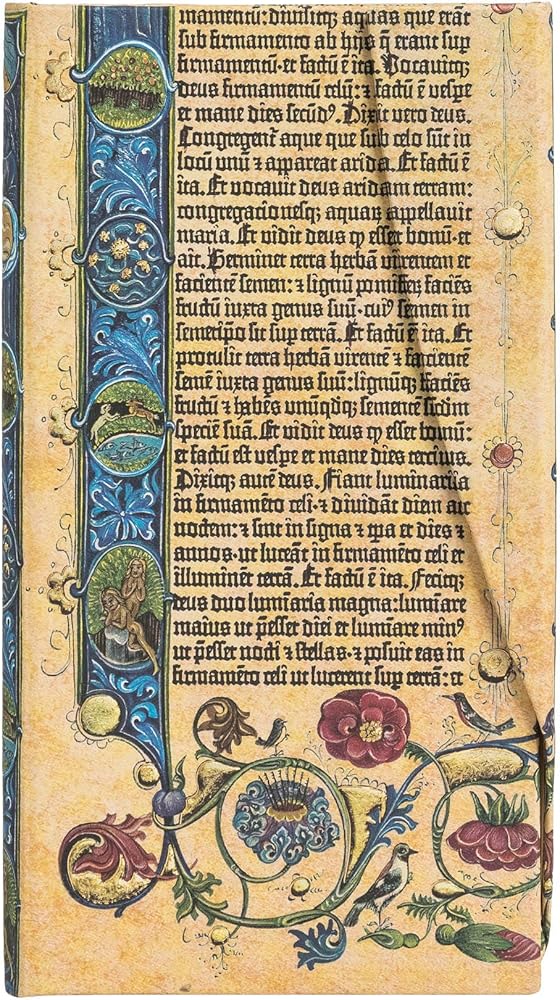 mamentū: diuisitq; aquas que erāt
sub firmamento ab hijs q̄ erant sup
firmamentū · et factū ē ita. Vocauitq;
deus firmamentū celū: ⁊ factū ē vespe
et mane dies secūdꝰ. Dixit vero deus.
Congregent̄ aque que sub celo sūt in
locū vnū ⁊ appareat arida. Et factū ē
ita. Et vocauit deus aridam terram:
congregacionesq; aquaꝝ appellauit
maria. Et vidit deus ꝙ esset bonū · et
ait. Germinet terra herbā virentem et
facientē semen: ⁊ lignū pomifeꝝ faciēs
fructū iuxta genus suū · cuiꝰ semen in
semetip̄o sit sup terrā. Et factū ē ita. Et
protulit terra herbā virentē ⁊ facientē
semē iuxta genus suū: lignūq; faciēs
fructū ⁊ habēs vnūqdq; sementē scdm
speciē suā. Et vidit deus ꝙ esset bonū:
et factū est vespe et mane dies tercius.
Dixitq; autē deus. Fiant luminaria
in firmamēto celi · ⁊ diuidāt diem ac
noctem: ⁊ sint in signa ⁊ tp̄a et dies ⁊
annos · ut luceāt in firmamēto celi et
illuminēt terrā. Et factū ē ita. Fecitq;
deus duo lumīaria magna: lumīare
maius ut p̄esset diei et lumīare minꝰ
ut p̄esset nocti ⁊ stellas · ⁊ posuit eas in
firmamēto celi ut lucerent sup terrā: et